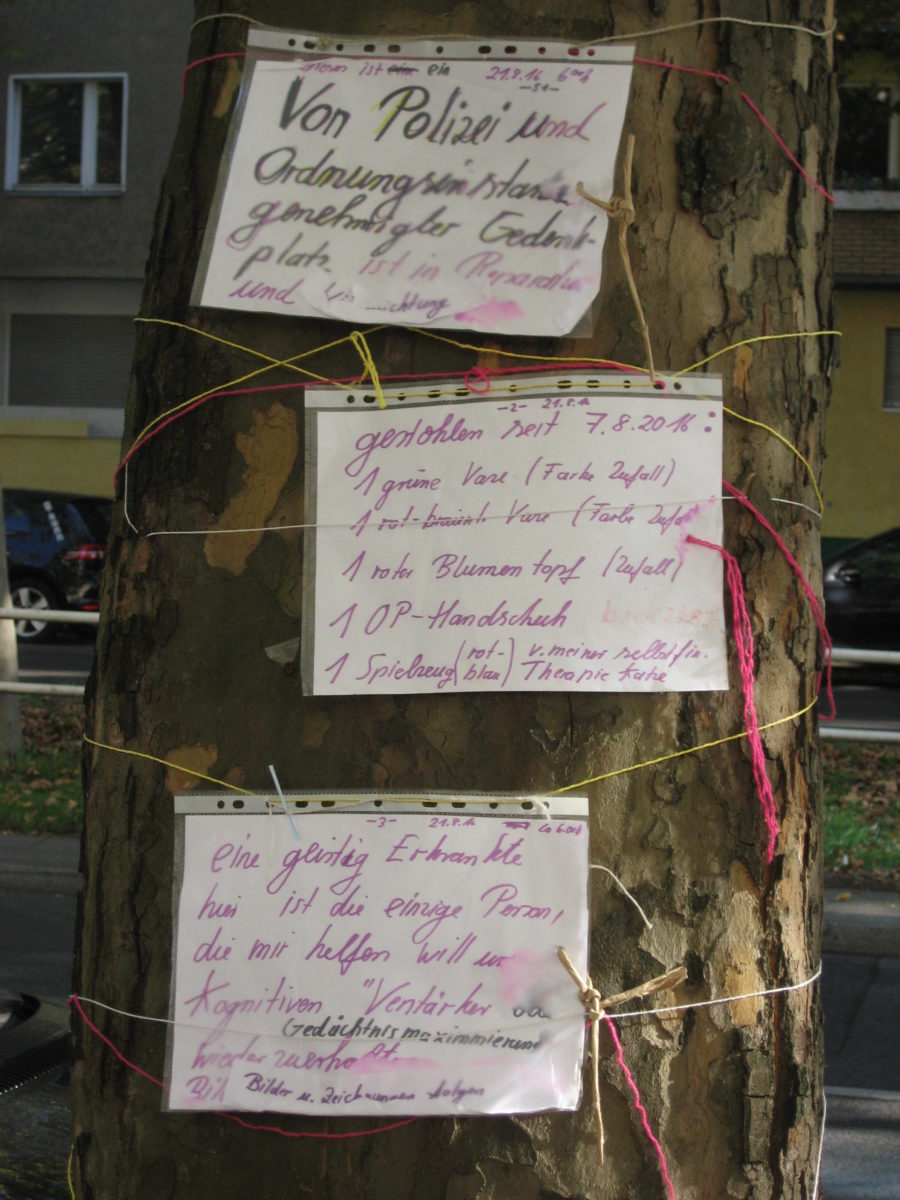 ist ein 21.8.16 6 00h
-S1-
Von Polizei und
Ordnungsinstanz
genehmigter Gedenk-
platz. ist in Reparatur
und
-2- 21.8.16
gestohlen seit 7.8.2016:
1 grüne Vase (Farbe Zufall)
1 rot-braune Vase (Farbe Zufall)
1 roter Blumentopf (Zufall)
1 OP-Handschuh
1 Spielzeug (rot-blau) v. meiner selbstfin.
Therapie Katze
-3- 21.8.16
eine geistig Erkrankte
hier ist die einzige Person,
die mir helfen will
Kognitiven "Verstärker
Gedächtnismaximmierung
wieder zuerho
Bilder u. Zeichnungen folgen